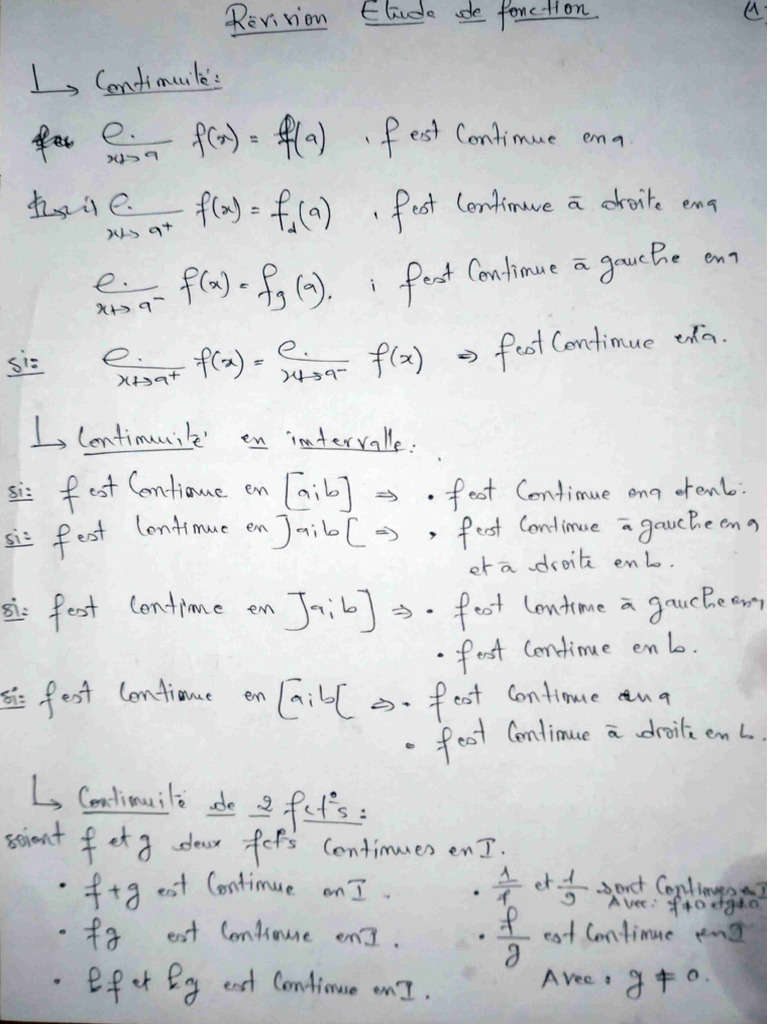 Révision Etude de fonction (1)
↳ Continuité:
l. x→a f(x) = f(a) , f est Continue en a
l. x→a⁺ f(x) = f_d(a) , f est Continue à droite en a
l. x→a⁻ f(x) = f_g(a). ; f est Continue à gauche en a
si: l. x→a⁺ f(x) = l. x→a⁻ f(x) ⇒ f est Continue en a.
↳ Continuité en intervalle:
si: f est Continue en [a;b] ⇒ • f est Continue en a et en b.
si: f est Continue en ]a;b[ ⇒ • f est Continue à gauche en a
et à droite en b.
si: f est Continue en ]a;b] ⇒ • f est Continue à gauche en a
• f est Continue en b.
si: f est Continue en [a;b[ ⇒ • f est Continue en a
• f est Continue à droite en b.
↳ Continuité de 2 fct°s:
soient f et g deux fct°s Continues en I.
• f+g est Continue en I. • 1/f et 1/g sont Continues en I
Avec: f≠0 et g≠0
• fg est Continue en I. • f/g est Continue en I
• kf et kg est Continue en I. Avec: g ≠ 0.